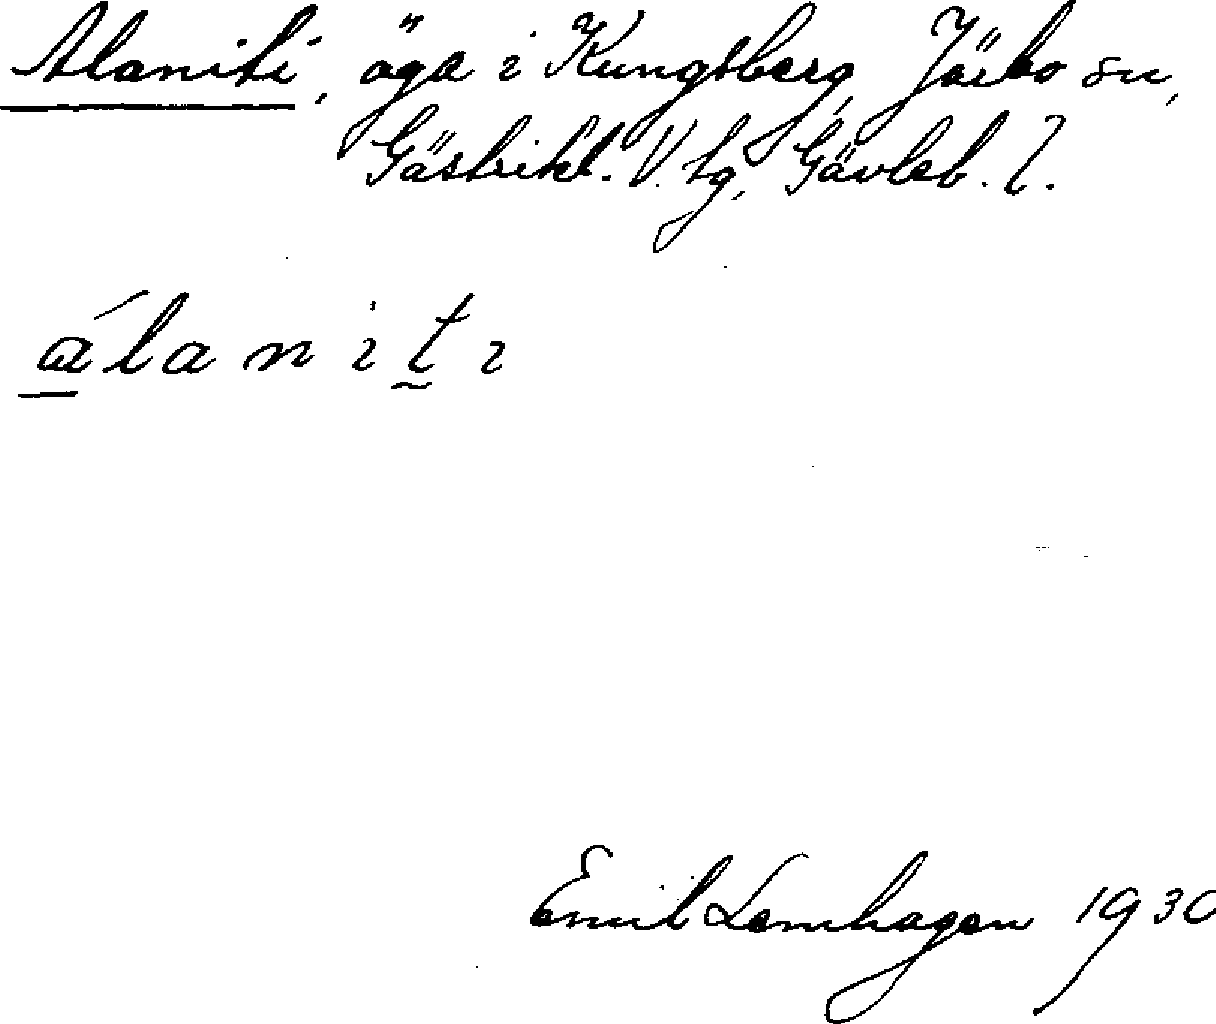 Alaniti, äga i Kungsberg, Järbo sn,
Gästrikl. V. tg, Gävleb. l.
álaniti
Emil Lemhagen 1930